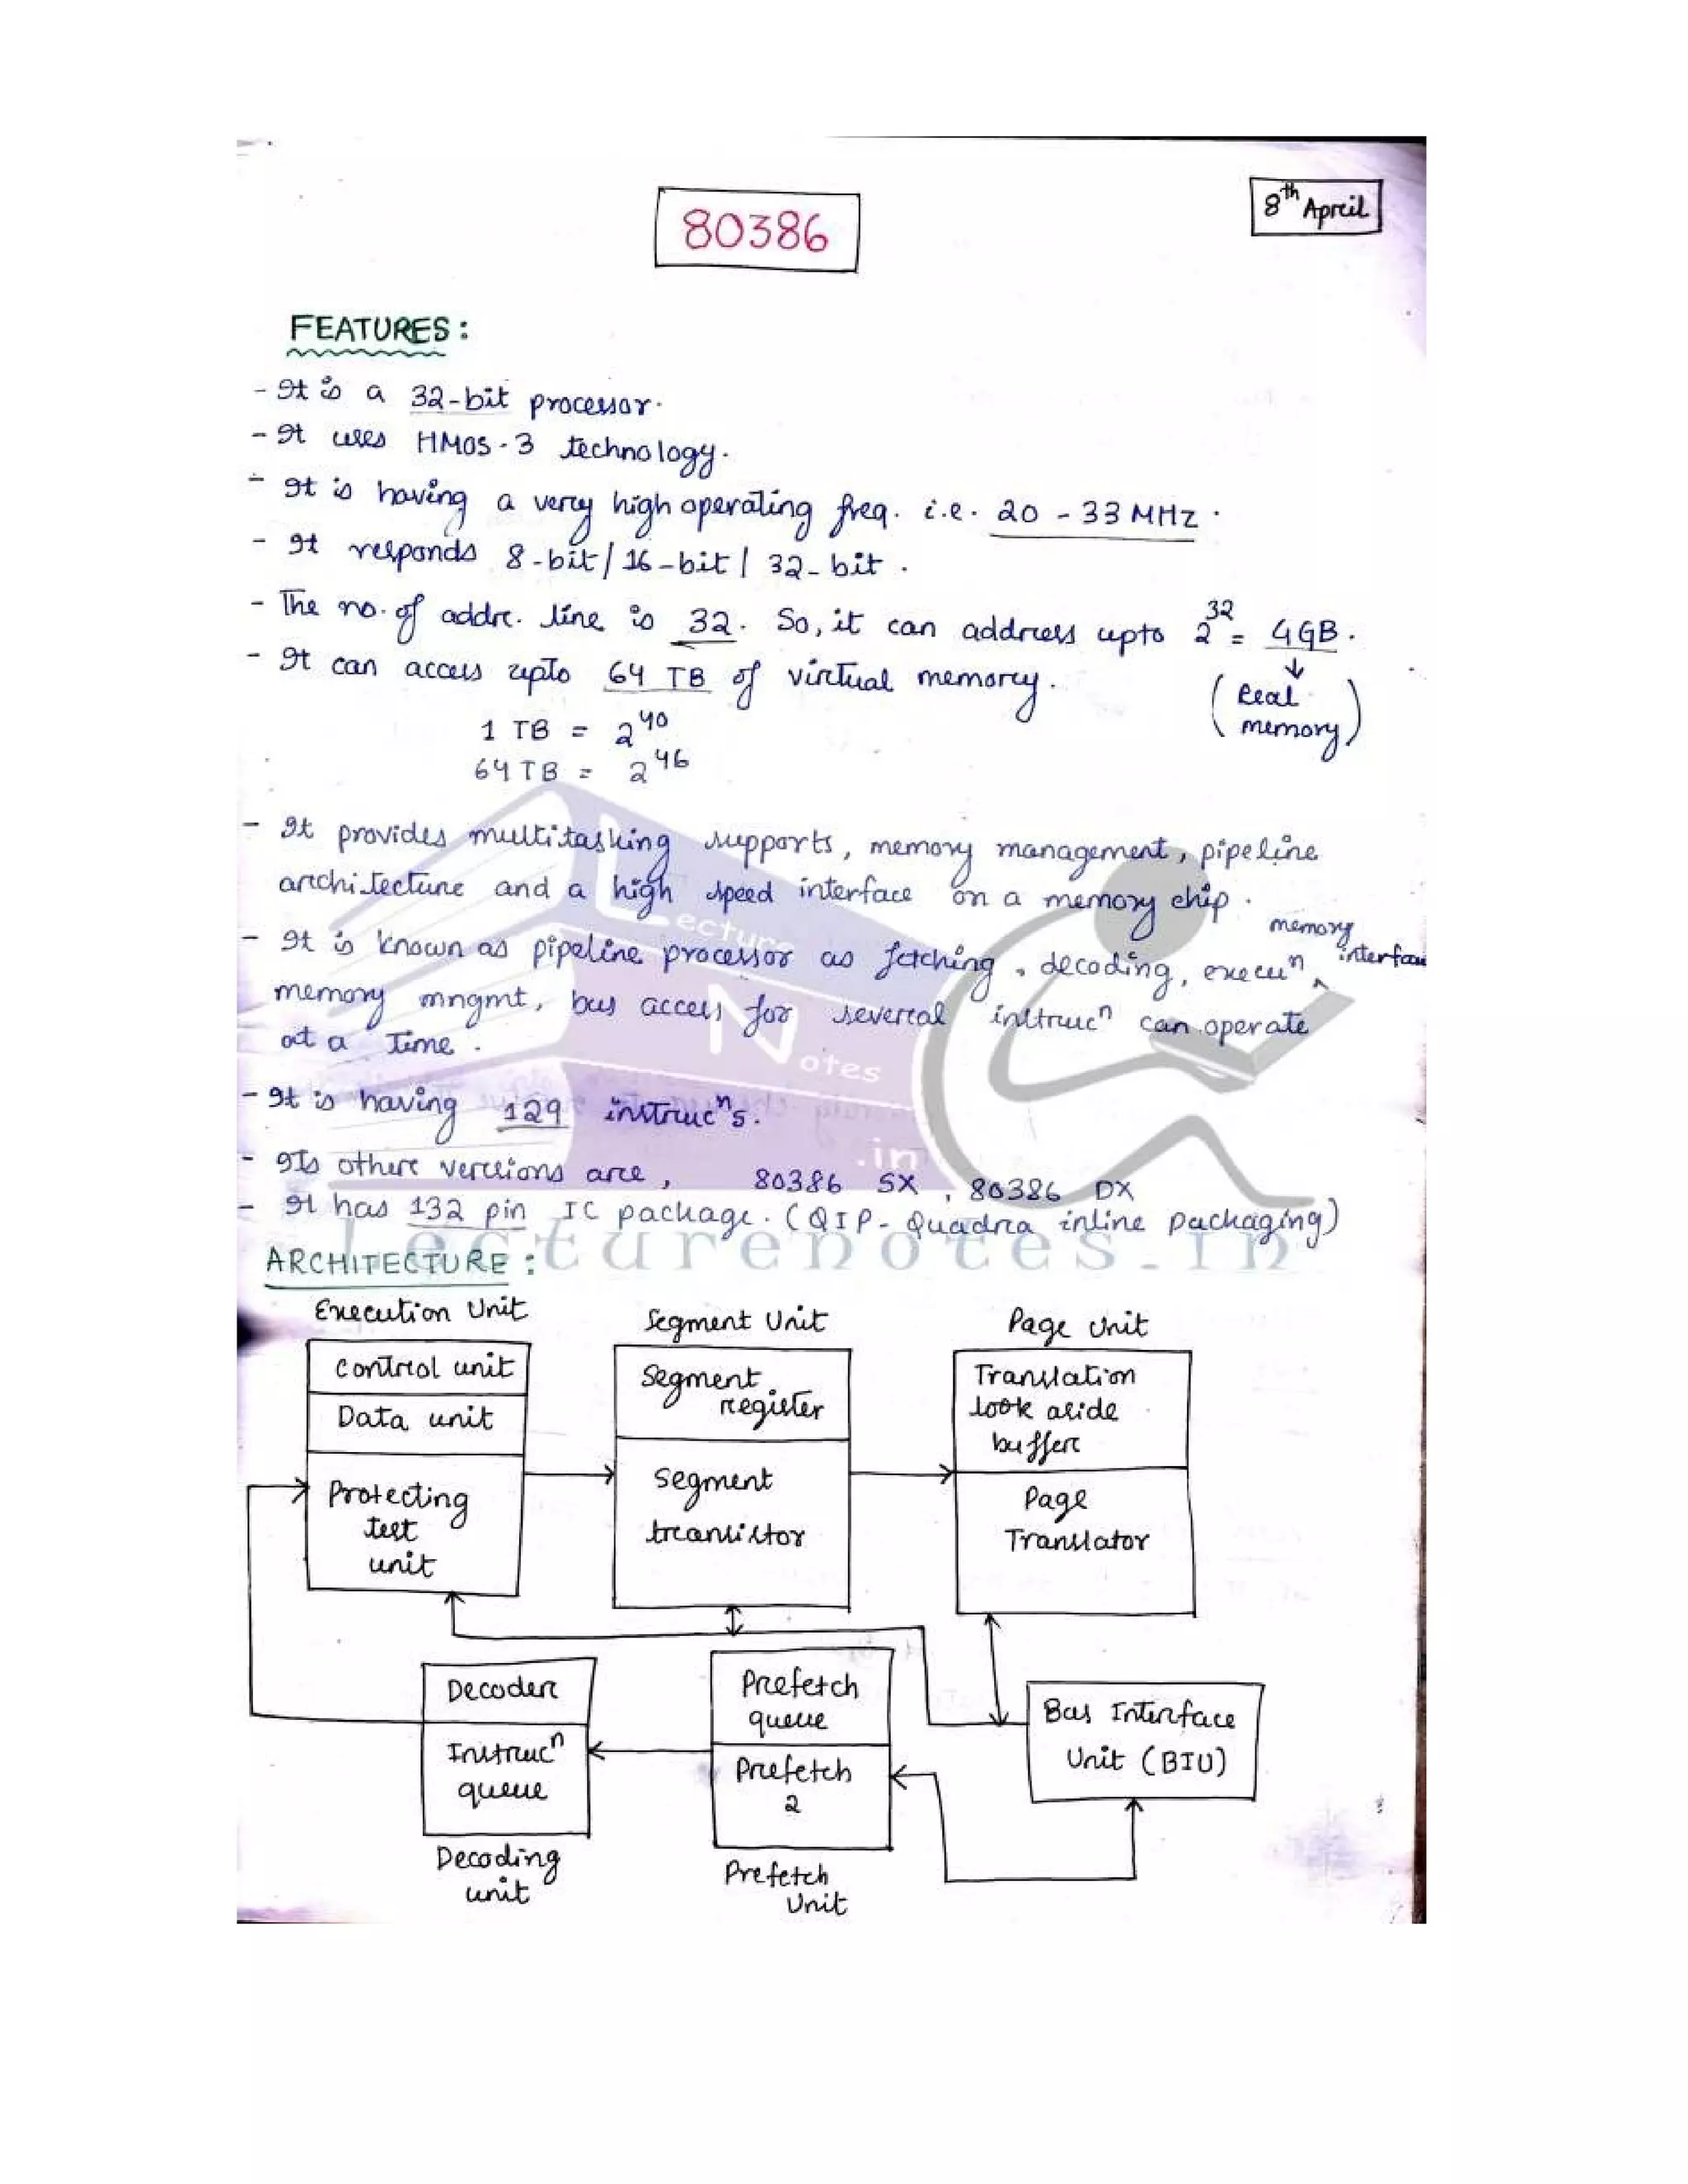 8th April
80386
FEATURES:
- It is a 32-bit processor.
- It uses HMOS-3 technology.
- It is having a very high operating freq. i.e. 20 - 33 MHz.
- It responds 8-bit/16-bit/32-bit.
- The no. of addr. line is 32. So, it can address upto 2^32 = 4GB.
↓
(Real memory)
- It can access upto 64 TB of virtual memory.
1 TB = 2^40
64 TB = 2^46
- It provides multitasking supports, memory management, pipeline
architecture and a high speed interface on a memory chip.
- It is known as pipeline processor as fetching, decoding, execuⁿ, memory interface
memory mngmt, bus access for several instrucⁿ can operate
at a time.
- It is having 129 instrucⁿs.
- Its other versions are, 80386 SX, 80386 DX
- It has 132 pin IC package. (QIP - Quadra inline packaging)
ARCHITECTURE:
Execution Unit
Control unit
Data unit
Protecting
test
unit
Segment Unit
Segment
register
Segment
transistor
Page Unit
Translation
look aside
buffer
Page
Translator
Decoder
Instrucⁿ
queue
Decoding
unit
Prefetch
queue
Prefetch
2
Prefetch
Unit
Bus Interface
Unit (BIU)
Lecture
Notes
.in
Lecturenotes.in